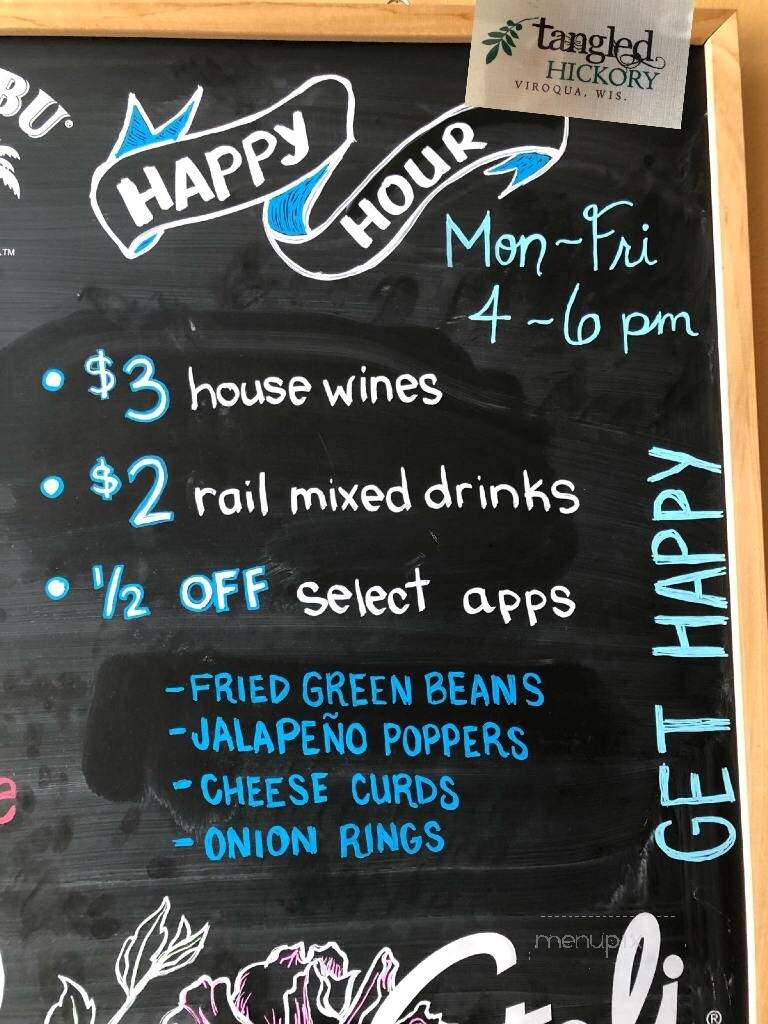 tangled
HICKORY
VIROQUA, WIS.
BU®
TM
HAPPY
HOUR
Mon-Fri
4-6 pm
• $3 house wines
• $2 rail mixed drinks
• 1/2 OFF select apps
-FRIED GREEN BEANS
-JALAPEÑO POPPERS
-CHEESE CURDS
-ONION RINGS
GET HAPPY
e
menupix
®